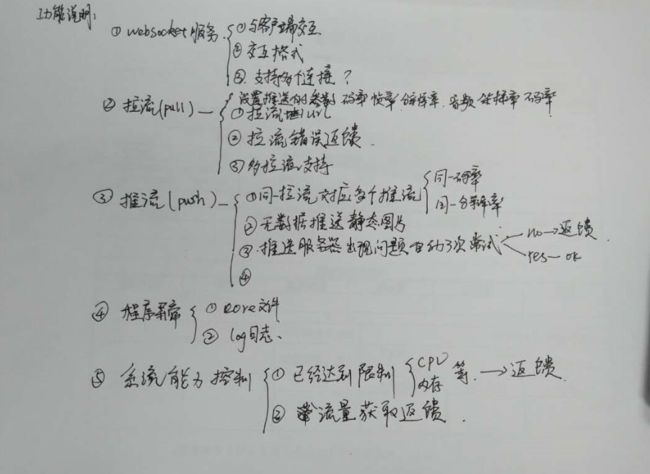 功能说明:
① websocket服务
① 与客户端交互
② 交互格式
③ 支持多个连接?
② 拉流(pull)
设置推送的参数 码率 帧率 分辨率 音频 采样率 码率
① 拉流地址url
② 拉流错误返馈
③ 多拉流支持
③ 推流(push)
① 同一拉流对应多个推流
同一码率
同一分辨率
② 无数据推送静态图片
③ 推送服务器出现问题 自动3次尝试
no→返馈
yes—ok
④
④ 程序异常
① core文件
② log日志.
⑤ 系统能力控制
① 已经达到限制
CPU
内存
等. →返馈.
② 流量获取返馈.